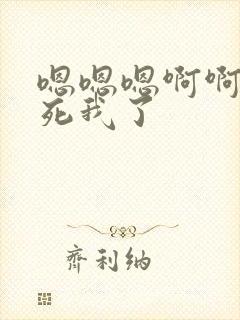 嗯嗯嗯啊啊
死我了
齐利纳